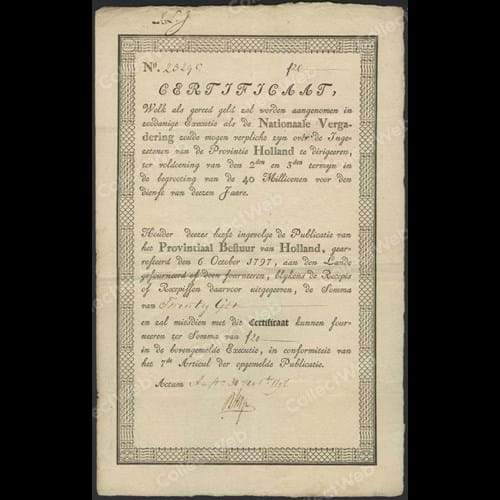 No. 2329
f20
CERTIFICAAT,
Welk als gereed geld zal worden aangenomen in
zoodanige Executie als de Nationaale Verga-
dering zoude mogen verplicht zyn over de Inge-
zetenen van de Provintie Holland te dirigeeren,
ter voldoening van den 2den en 3den termyn in
de begrooting van de 40 Millioenen voor den
dienst van deezen Jaare.
Houder deezes heeft ingevolge de Publicatie van
het Provintiaal Bestuur van Holland, gear-
resteerd den 6 October 1797, aan den Lande
gefourneerd of doen fourneeren, blykens de Recepis
of Recepissen daarvoor uitgegeeven, de Somma
van Twintig Gln
en zal mitsdien met dit Certificaat kunnen four-
neeren ter Somma van f20
in de bovengemelde Executie, in conformiteit van
het 7de Articul der opgemelde Publicatie.
Actum
CollectWeb